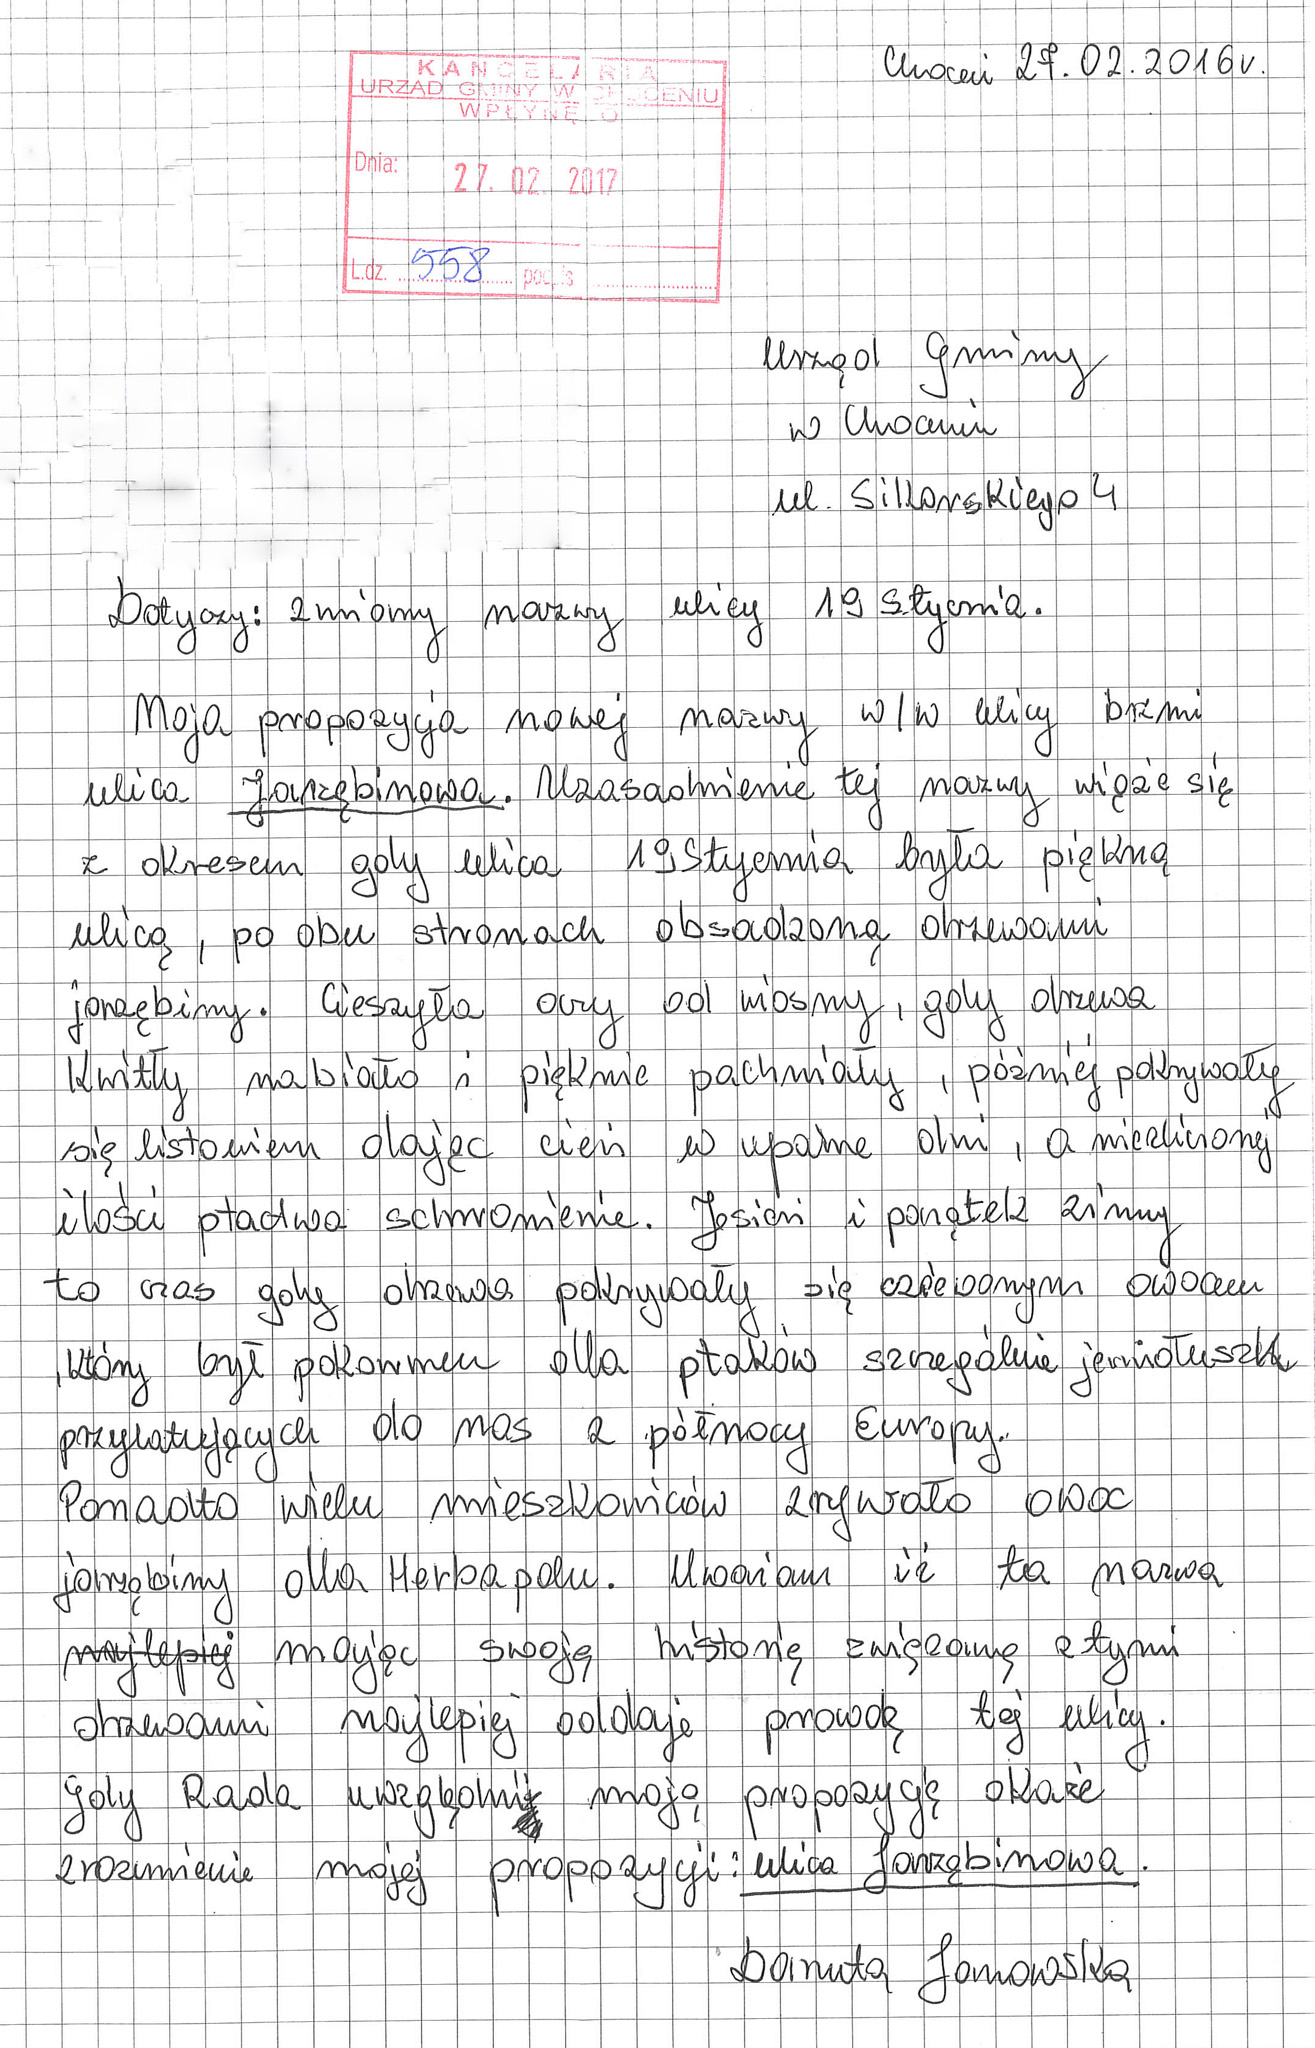 Choceń 27.02.2016r.
KANCELARIA
URZĄD GMINY W CHOCENIU
WPŁYNĘŁO
Dnia: 27. 02. 2017
L.dz. 558 podpis
Urząd Gminy
w Choceniu
ul. Sikorskiego 4
Dotyczy: zmiany nazwy ulicy 19 Stycznia.
Moja propozycja nowej nazwy w/w ulicy brzmi
ulica Jarzębinowa. Uzasadnienie tej nazwy wiąże się
z okresem gdy ulica 19 Stycznia była piękną
ulicą, po obu stronach obsadzoną drzewami
jarzębiny. Cieszyła oczy od wiosny, gdy drzewa
kwitły na biało i pięknie pachniały, później pokrywały
się listowiem dając cień w upalne dni, a niezliczonej
ilości ptactwa schronienie. Jesień i początek zimy
to czas gdy drzewa pokrywały się czerwonym owocem
, który był pokarmem dla ptaków szczególnie jemiołuszk
przylatujących do nas z północy Europy.
Ponadto wielu mieszkańców zrywało owoc
jarzębiny dla Herbapolu. Uważam iż ta nazwa
najlepiej mając swoją historię związaną z tymi
drzewami najlepiej oddaje prawdę tej ulicy.
Gdy Rada uwzględni moją propozycję okaże
zrozumienie mojej propozycji: ulica Jarzębinowa.
Danuta Janowska